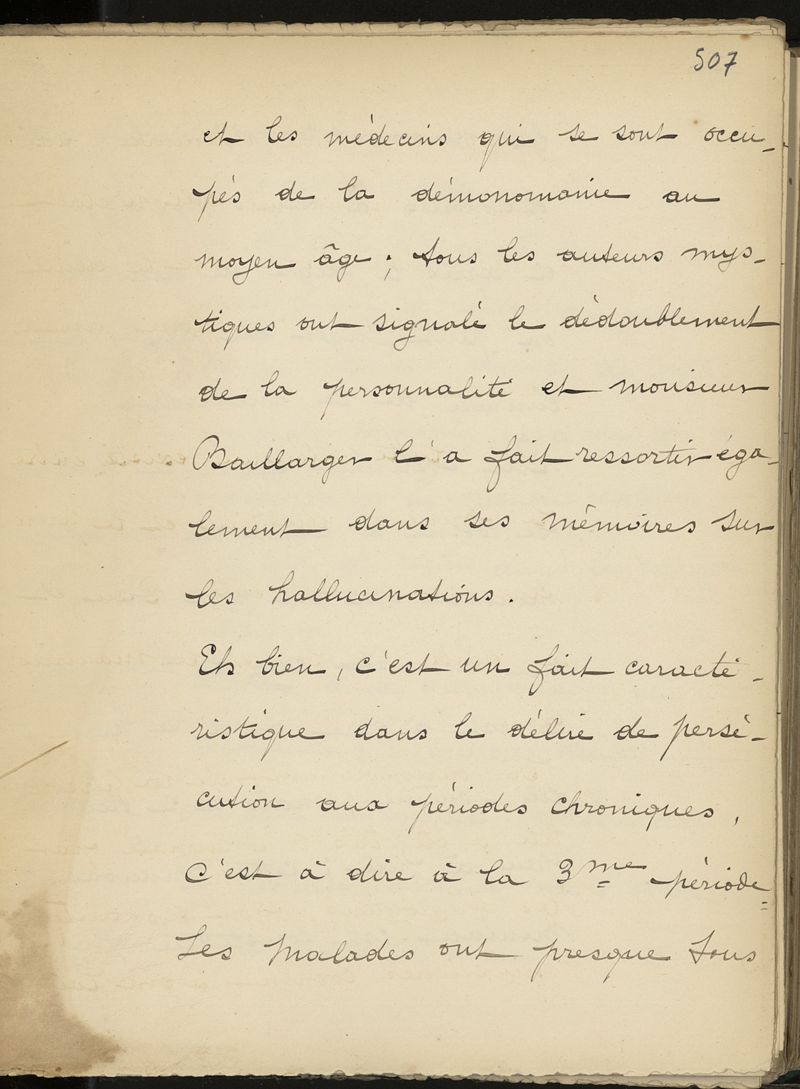 507
et les médecins qui se sont occu-
pés de la démonomanie au
moyen âge ; tous les auteurs mys-
tiques ont signalé le dédoublement
de la personnalité et monsieur
Baillarger l'a fait ressortir éga-
lement dans ses mémoires sur
les hallucinations.
Eh bien, c'est un fait caracté-
ristique dans le délire de persé-
cution aux périodes chroniques,
c'est à dire à la 3me période.
Les malades ont presque tous